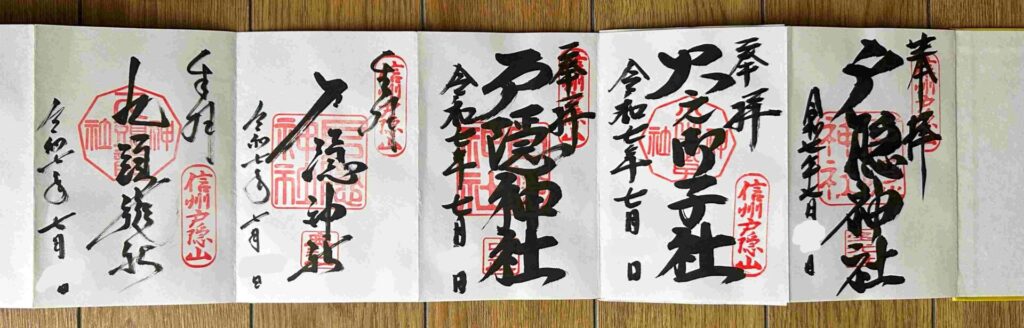 奉拝
信州戸隠山
戸隠神社
令和七年七月 日
奉拝
信州戸隠山
火之御子社
令和七年七月 日
奉拝
信州戸隠山
戸隠神社
令和七年七月 日
奉拝
信州戸隠山
戸隠神社
令和七年七月 日
奉拝
信州戸隠山
九頭龍社
令和七年七月 日